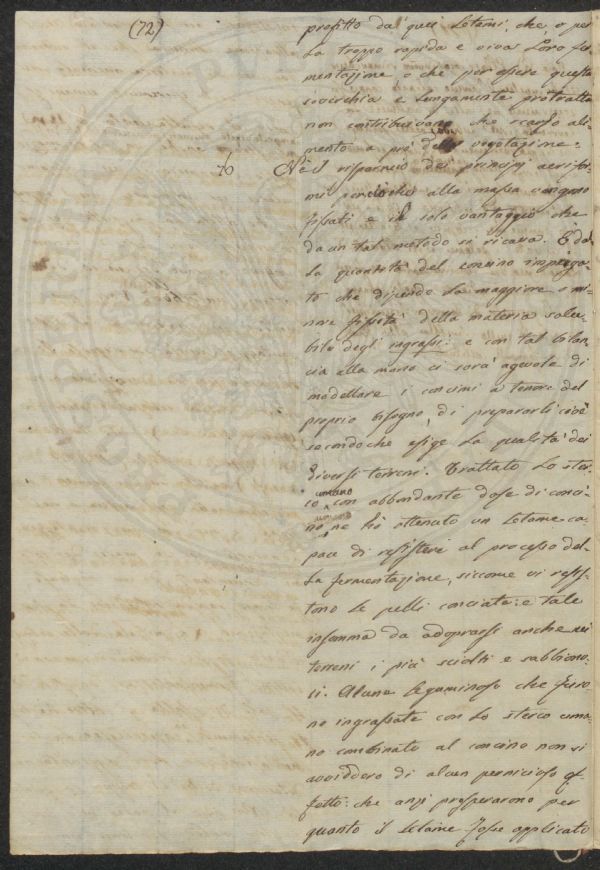 (72)
profitto da quei Letami, che, o per
la troppo rapida e viva Loro fer
mentazione, o che per essere questa
soverchia e Lungamente protratta
non contribuivano che scarso ali
mento a pro della vegetazione.
Nè il risparmio dei principj aerifor
mi perciocchè alla massa vengono
fissati è il solo vantaggio che
da un tal metodo si ricava. E dal
La quantità del concino impiega
to che dipende La maggiore o mi
nore fissità della materia solu
bile degli ingrassi: e con tal bilan
cia alla mano ci sarà agevole di
modellare i concimi a tenore del
proprio bisogno, di prepararli cioè
secondochè esige La qualità dei
diversi terreni. Trattato Lo ster
co umano con abbondante dose di conci
no, ne hò ottenuto un Letame ca
pace di resistere al processo del
La fermentazione, siccome vi resis
tono Le pelli conciate: e tale
insomma da adoprarsi anche nei
terreni i più sciolti e sabbiono
si. Alcune Leguminose che furo
no ingrassate con Lo sterco uma
no combinato al concino non si
avviddero di alcun pernicioso ef
fetto: che anzi prosperarono per
quanto il Letame fosse applicato